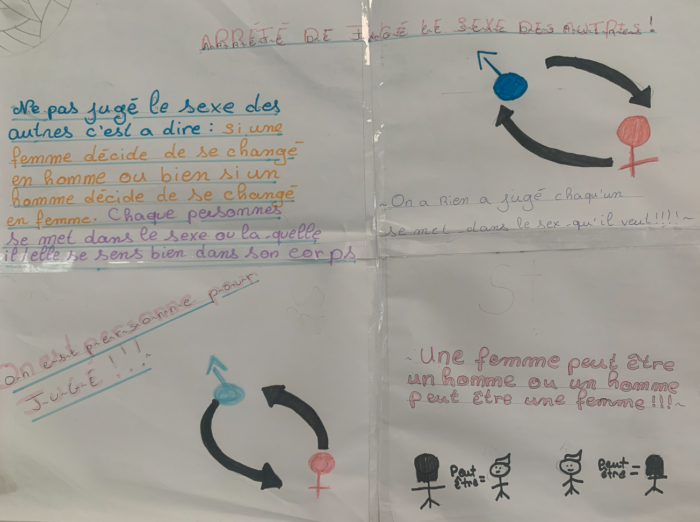 ARRÉTÉ DE JUGÉ LE SEXE DES AUTRES !
Ne pas jugé le sexe des
autres c'est a dire : si une
femme décide de se changé
en homme ou bien si un
homme décide de se changé
en femme. Chaque personnes
se met dans le sexe ou la-quelle
il/elle se sens bien dans son corps
~On a Rien a jugé chaqu'un
se met dans le sex qu'il veut!!!!~
on est personne pour
J-U-G-É !!!
~Une femme peut être
un homme ou un homme
peut être une femme!!!~
Peut
être =
Peut
être =